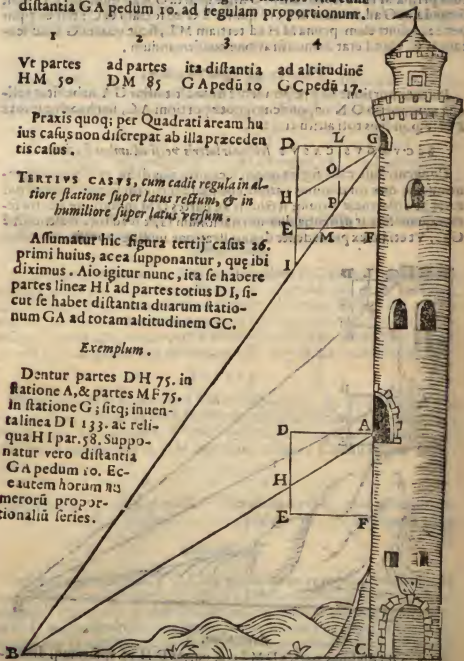 distantia GA pedum 10. ad regulam proportionum.
1 2 3 4
Vt partes ad partes ita distantia ad altitudinẽ
HM 50 DM 85 GA pedũ 10 GC pedũ 17.
Praxis quoq; per Quadrati aream hu
ius casus non discrepat ab illa præceden
tis casus.
TERTIVS CASVS, cum cadit regula in al-
tiore statione super latus rectum, & in
humiliore super latus versum.
Assumatur hic figura tertij casus 26.
primi huius, ac ea supponantur, quę ibi
diximus. Aio igitur nunc, ita se habere
partes lineæ HI ad partes totius DI, si-
cut se habet distantia duarum statio-
num GA ad totam altitudinem GC.
Exemplum.
Dentur partes DH 75. in
statione A, & partes MF 75.
in statione G; sitq; inuen-
ta linea DI 133. ac reli-
qua HI par. 58. Suppo-
natur vero distantia
GA pedum 10. Ec-
ce autem horum nu
merorũ propor-
tionaliũ series.
D L G
O
H P
E M F
I
D A
H
E F
B C